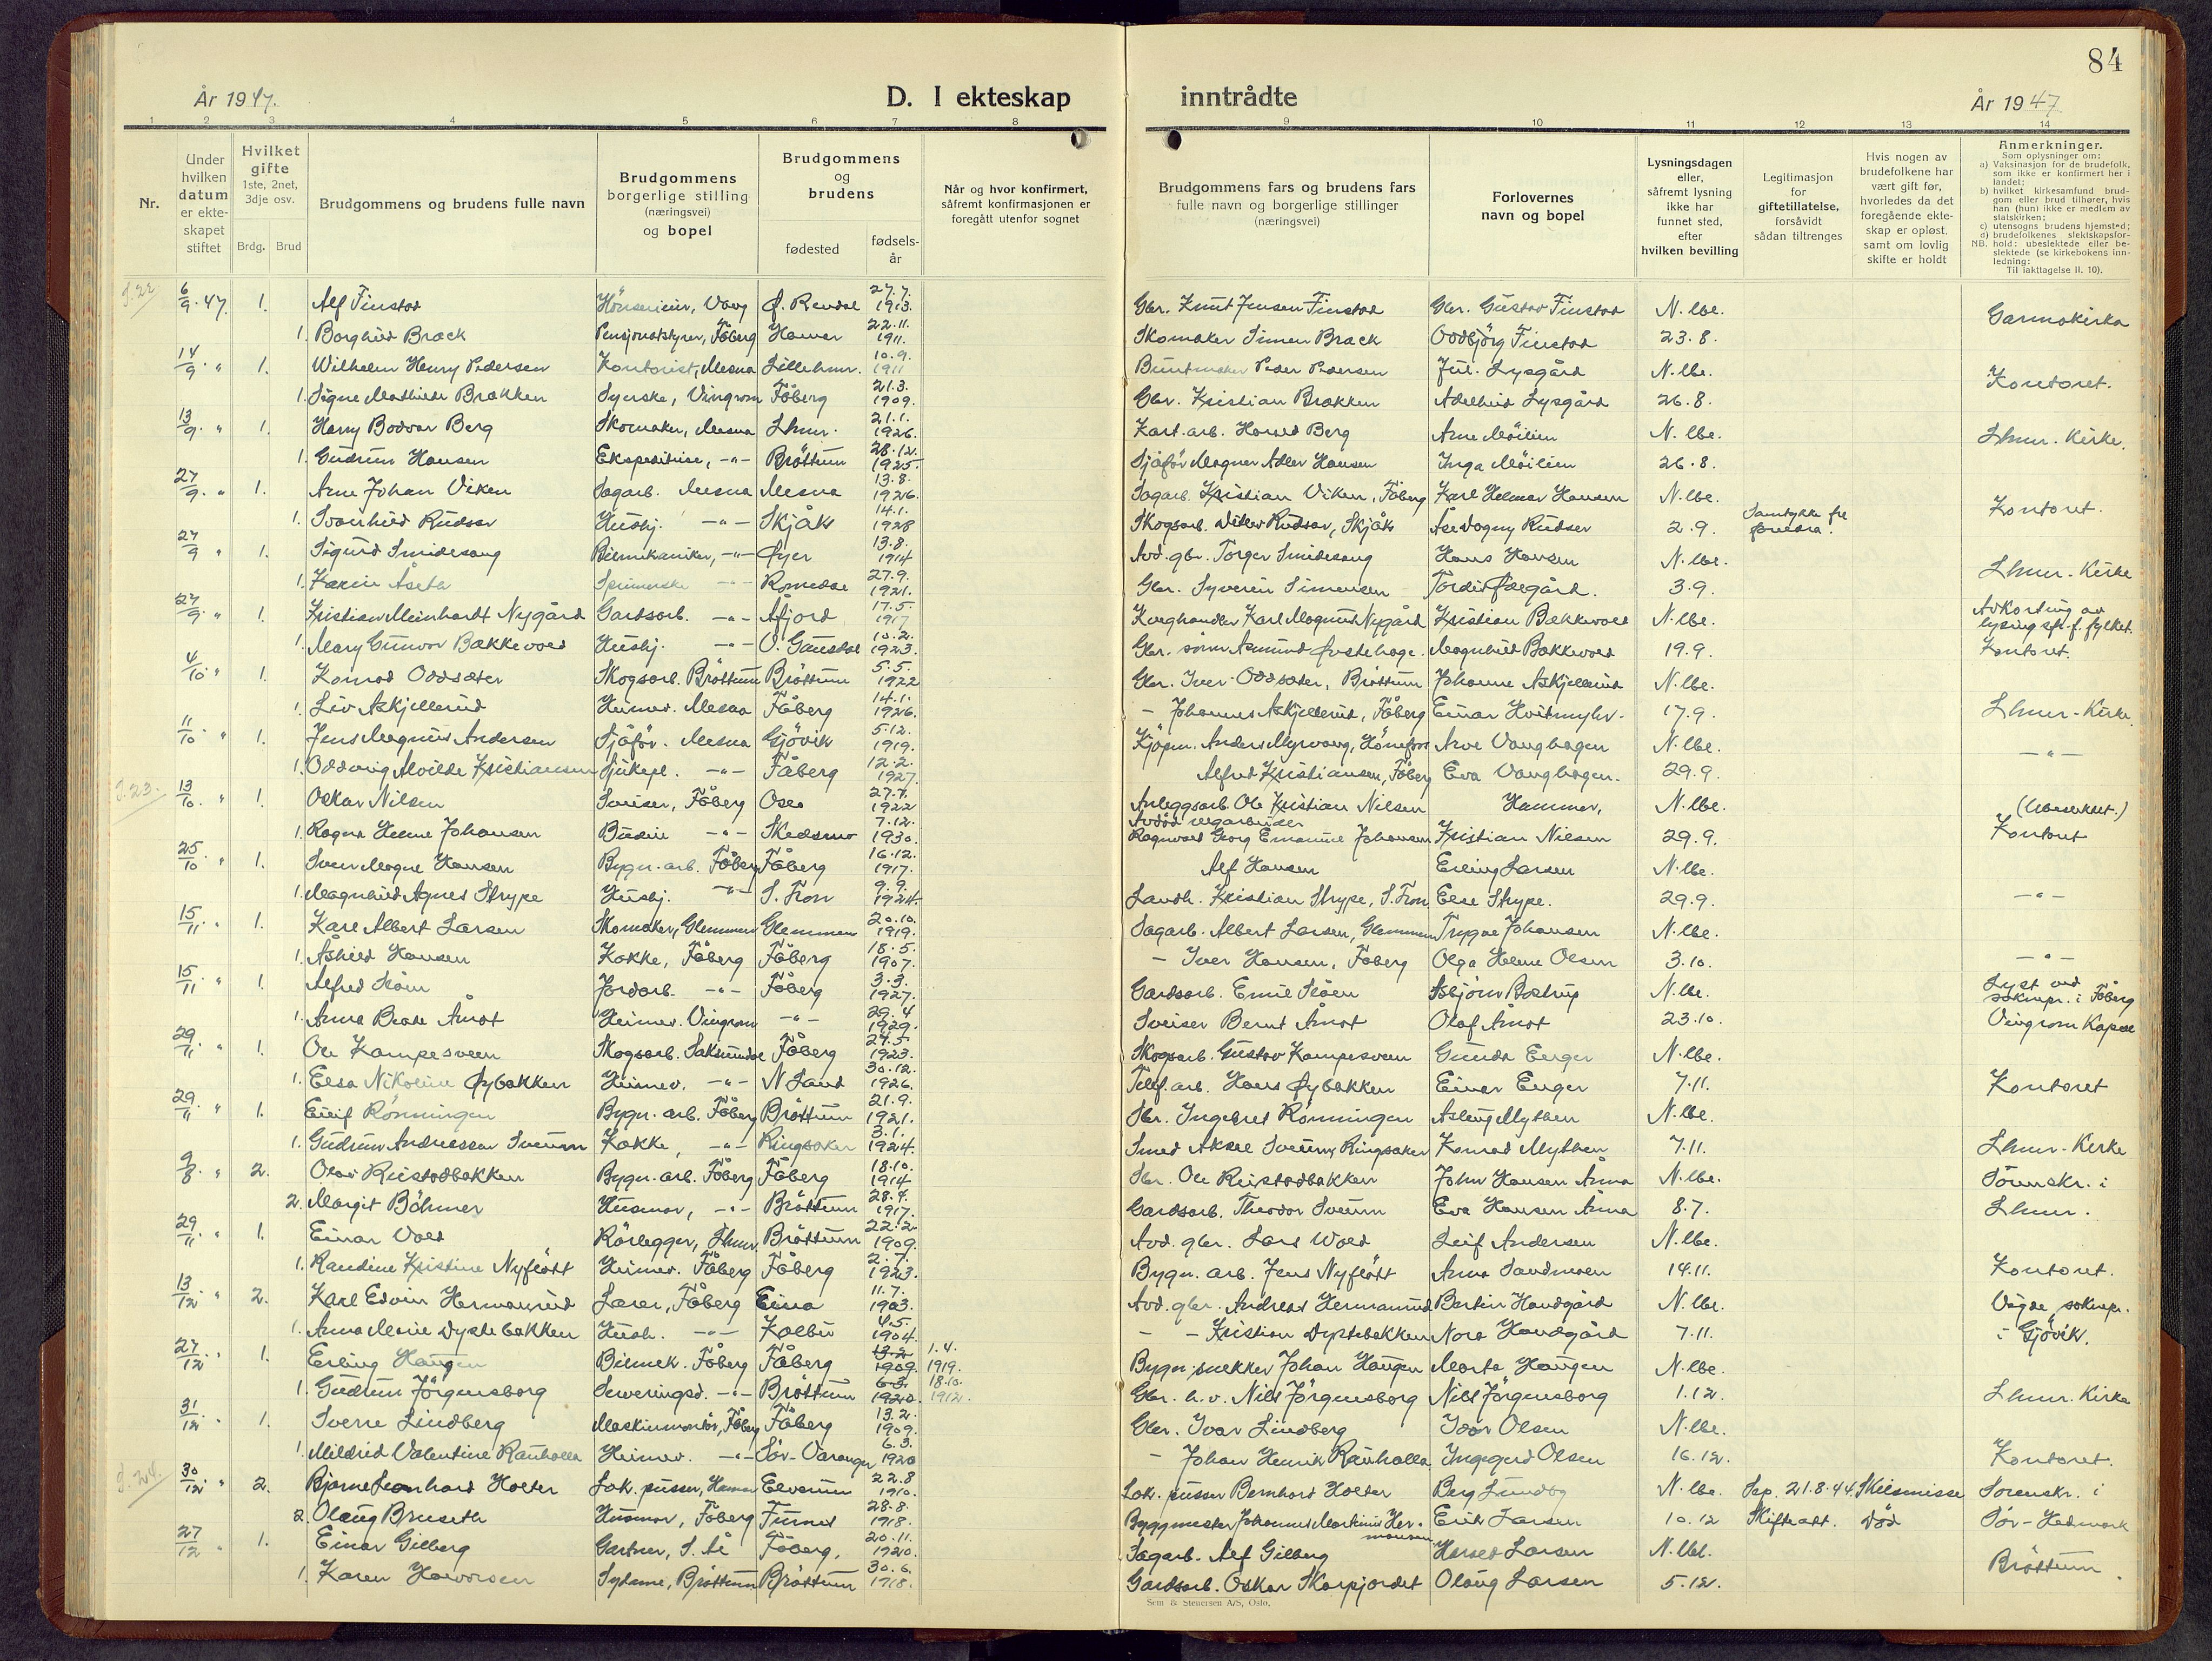 84
År 1947.
D. I ekteskap inntrådte
År 1947
1 2 3 4 5 6 7 8 9 10 11 12 13 14
Nr.
Under hvilken datum er ekteskapet stiftet
Hvilket gifte 1ste, 2net, 3dje osv.
Brdg. Brud
Brudgommens og brudens fulle navn
Brudgommens borgerlige stilling (næringsvei) og bopel
Brudgommens og brudens
fødested
fødselsår
Når og hvor konfirmert, såfremt konfirmasjonen er foregått utenfor sognet
Brudgommens fars og brudens fars fulle navn og borgerlige stillinger (næringsvei)
Forlovernes navn og bopel
Lysningsdagen eller, såfremt lysning ikke har funnet sted, efter hvilken bevilling
Legitimasjon for giftetillatelse, forsåvidt sådan tiltrenges
Hvis nogen av brudefolkene har vært gift før, hvorledes da det foregående ekteskap er opløst, samt om lovlig skifte er holdt
Anmerkninger.
Som oplysninger om:
a) Vaksinasjon for de brudefolk, som ikke er konfirmert her i landet;
b) hvilket kirkesamfund brudgom eller brud tilhører, hvis han (hun) ikke er medlem av statskirken;
c) utensogns brudens hjemsted;
d) brudefolkenes slektskapsforhold: ubeslektede eller beslektede (se kirkebokens innledning:
NB.
Til iakttagelse II. 10).
6/9. 47. 1. Alf Finstad Hønserieir, Vang Ø. Rendal 27.7. 1913. Gbr. Knut Jensen Finstad Gbr. Gustav Finstad N. lbe. Garmokirka
1. Borghild Brack Pensjonatstyrer, Fåberg Hamar 22.11. 1911. Skomaker Simen Brack Oddbjörg Finstad 23.8.
14/9 " 1. Wilhelm Henry Pedersen Kontorist, Mesna Lillehmr. 10.9. 1911 Buntmaker Peder Pedersen Jul. Lysgård N. lbe. Kontoret.
1. Signe Mathilde Brakken Syerske, Vingrom Fåberg 21.3. 1909. Gbr. Kristian Brakken Adelheid Lysgård 26.8.
13/9. " 1. Harry Bodvar Berg Skomaker, Mesna Lhmr. 21.1. 1926. Kart. arb. Harald Berg Arne Möilien N. lbe. Lhmr. Kirke.
1. Gudrun Hansen Ekspeditrise, -"- Bröttum 28.12. 1925. Sjåför Magnar Adler Hansen Inga Möilien 26.8.
27/9. " 1. Arne Johan Viken Sagarb. Mesna Mesna 13.8. 1926. Sagarb. Kristian Viken, Fåberg Karl Helmer Hansen N. lbe. Samtykke fra foreldra. Kontoret.
1. Svanhild Rudsar Hushj. -"- Skjåk 14.1. 1928 Skogsarb. Ditlev Rudsar, Skjåk Åse Dagny Rudsar 2.9.
27/9 " 1. Sigurd Smidesang Bilmekaniker, -"- Øyer 13.8. 1914 Avd. gbr. Torger Smidesang Hans Hansen N. lbe. Lhmr. Kirke
1. Karin Åseth -"- Romedal 27.9. 1921. Gbr. Syverin Simensen Tordis Ødegård. 3.9.
27/9. " 1. Kristian Meinhardt Nygård Gardsarb. -"- Åfjord 17.5. 1917 Kveghandler Karl Magnus Nygård Kristian Bakkevold N. lbe. Avkorting av lysing eft. f. fylket.
1. Mary Gunvor Bakkevold Hushj. -"- V. Gausdal 10.2. 1923. Gbr. sønn Asmund Øvstehage. Magnhild Bakkevold 19.9. Kontoret.
4/10 " 1. Konrad Oddsæter Skogsarb. Bröttum Bröttum 5.5. 1922 Gbr. Iver Oddsæter, Bröttum Johanne Askjellerud N. lbe. Lhmr. Kirke.
1. Liv Askjellerud Heimev. Mesna Fåberg 14.1. 1926. - Johannes Askjellerud, Fåberg Einar Hvitmyhr. 17.9.
11/10 " 1. Jens Magnus Andersen Sjåför. Mesna Gjövik 5.12. 1919. Kjöpm. Anders Myrvang, Hönefoss Arve Vanghagen N. lbe. -"-
1. Oddveig Alvilde Kristiansen Sjukepl. -"- Fåberg 12.2. 1927. Alfred Kristiansen, Fåberg Eva Vanghagen. 29.9.
13/10. " 1. Oskar Nilsen Sveiser, Fåberg Oslo 27.7. 1922 Anleggsarb. Ole Kristian Nilsen Hammer, N. lbe. (Ubeslektet.)
1. Ragna Helene Johansen Budeie -"- Skedsmo 7.12. 1930. Avdöd vegarbeider Ragnvald Georg Emanuel Johansen Kristian Nilsen 29.9. Kontoret
25/10 " 1. Sven Magne Hansen Bygn. arb. Fåberg Fåberg 16.12. 1917. Alf Hansen Erling Larsen N. lbe. -"-
1. Magnhild Agnes Strype Hushj. -"- S. Fron 9.9. 1924. Landh. Kristian Strype, S. Fron Else Strype. 29.9.
15/11 " 1. Kåre Albert Larsen Skomaker, Glemmen Glemmen 20.10. 1919. Sagarb. Albert Larsen, Glemmen Trygve Johansen N. lbe. -"-
1. Åshild Hansen Kokke, Fåberg Fåberg 18.5. 1907. - Iver Hansen, Fåberg Olga Helene Olsen 3.10.
15/11 " 1. Alfred Slåen Jordarb. -"- Fåberg 3.3. 1927. Gardsarb. Emil Slåen Asbjörn Rostrup N. lbe. Lyst ved soknepr. i Fåberg
1. Anna Beate Åmot Heimev. Vingrom -"- 29.4 1929. Sveiser Bernt Åmot Olaf Åmot 23.10. Vingrom Kapel
29/11 " 1. Ole Kampesveen Skogsarb. Saksumdal Fåberg 24.5 1923. Skogsarb. Gustav Kampesveen Gunda Enger N. lbe. Kontoret
1. Elsa Nikoline Øybakken Heimev. -"- N Land 30.12. 1926. Telef. arb. Hans Øybakken Einar Enger 7.11.
29/11 " 1. Eilif Rönningen Bygn. arb. Fåberg Bröttum 21.9. 1921. Gbr. Ingebret Rönningen Aslaug Mythen N. lbe. Lhmr. Kirke
1. Gudrun Andreassen Sveum Kokke, -"- Ringsaker 3.1. 1924. Smed Aksel Sveum, Ringsaker Konrad Mythen 7.11.
9/8. " 2. Olav Reistadbakken Bygn. arb. Fåberg Fåberg 18.10. 1914 Gbr. Ole Reistadbakken John Hansen Ånna N. lbe. Sörenskr. i
2. Margit Böhmer Husmor, -"- Bröttum 28.4. 1917. Gardsarb. Theodor Sveum Eva Hansen Ånna 8.7. Lhmr.
29/11 " 1. Einar Vold Rörlegger, Lhmr. Bröttum 22.2 1909. Avd. gbr. Lars Wold Leif Andersen N. lbe. Kontoret.
1. Randine Kristine Nyflött Heimev. Fåberg Fåberg 2.7. 1923. Bygn. arb. Jens Nyflött Anna Sandmoen 14.11.
13/12 " 2. Karl Edvin Hermanrud Lærer, Fåberg Eina 11.7. 1903. Avd. gbr. Andreas Hermanrud Bertin Haudgård N. lbe. Vigde, soknepr. i Gjövik.
1. Anna Marie Dystebakken Hush. -"- Kolbu 4.5. 1904. - - Kristian Dystebakken Nora Haudgård 7.11.
27/12 " 1. Erling Haugen Bilmek. Fåberg Fåberg 13.2 1909. 1.4. 1919. Bygn. snekker Johan Haugen Marta Haugen N. lbe. Lhmr. Kirke
1. Gudrun Jörgensborg Serveringsd. -"- Bröttum 6.3. 1920. 18.10. 1912. Gbr. h. v. Nils Jörgensborg Nils Jörgensborg 1.12.
31/12 " 1. Sverre Lindberg Maskinmontör, Fåberg Fåberg 13.2. 1909. Gbr. Ivar Lindberg Idar Olsen N. lbe. Kontoret.
1. Mildrid Valentine Rauhalla Heimev. -"- Sör-Varanger 6.3. 1920 - Johan Henrik Rauhalla Ingegerd Olsen 16.12.
30/12 " 2. Bjarne Leonhard Holter Lok. pusser, Hamar Elverum 22.8 1910. Lok. pusser Bernhard Holter Berg Lundby N. lbe. Sep. 21.8.44. Skilsmisse Sorenskr. i
2. Olaug Bruseth Husmor, Fåberg Furnes 28.8. 1918. Byggmester Johannes Martinius Hermansen Erik Larsen 10.12 Skifteatt. Död Sör-Hedmark
27/12 " 1. Einar Gilberg Gartner, S. Ål Fåberg, 20.11. 1920. Sagarb. Alf Gilberg Harald Larsen N. lbl. Bröttum.
1. Karen Halvorsen Sydame, Bröttum Bröttum 30.6. 1918. Gardsarb. Oskar Skarpjordet Olaug Larsen 5.12.
S. 22
S. 23.
S. 24.
Sem & Stenersen A/S, Oslo.